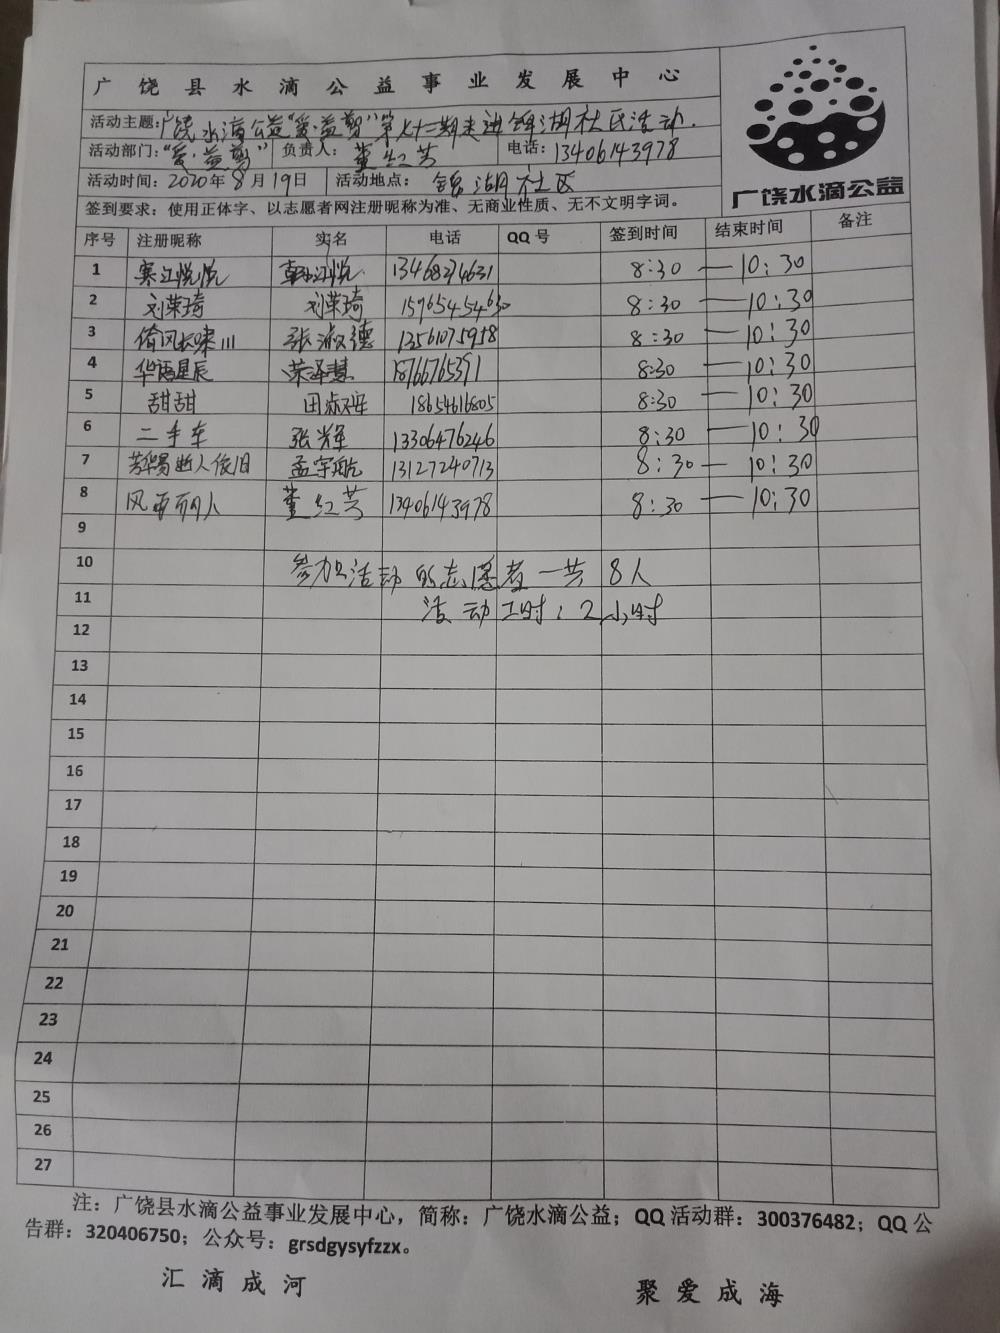 广饶县水滴公益事业发展中心
活动主题：广饶水滴公益“爱·益剪”第七十二期走进锦湖社区活动.
活动部门：“爱·益剪” 负责人：董红芳 电话：13406143978
活动时间：2020年8月19日 活动地点：锦湖社区
广饶水滴公益
签到要求：使用正体字、以志愿者网注册昵称为准、无商业性质、无不文明字词。
序号 注册昵称 实名 电话 QQ号 签到时间 结束时间 备注
1 寒江悦悦 13468274631 8:30 — 10:30
2 刘荣琦 刘荣琦 15965454630 8:30 — 10:30
3 倚风长啸川 张淑德 13561075958 8:30 — 10:30
4 华语星辰 荣泽慧 18766765391 8:30 — 10:30
5 甜甜 田 18654616805 8:30 — 10:30
6 二手车 张辉 13306476246 8:30 — 10:30
7 芳华易逝人依旧 孟宇航 13127240713 8:30 — 10:30
8 风雨丽人 董红芳 13406143978 8:30 — 10:30
9
10 参加活动的志愿者一共8人
11 活动工时：2小时
12
13
14
15
16
17
18
19
20
21
22
23
24
25
26
27
注：广饶县水滴公益事业发展中心，简称：广饶水滴公益；QQ活动群：300376482；QQ公
告群：320406750；公众号：grsdgysyfzzx。
汇滴成河 聚爱成海